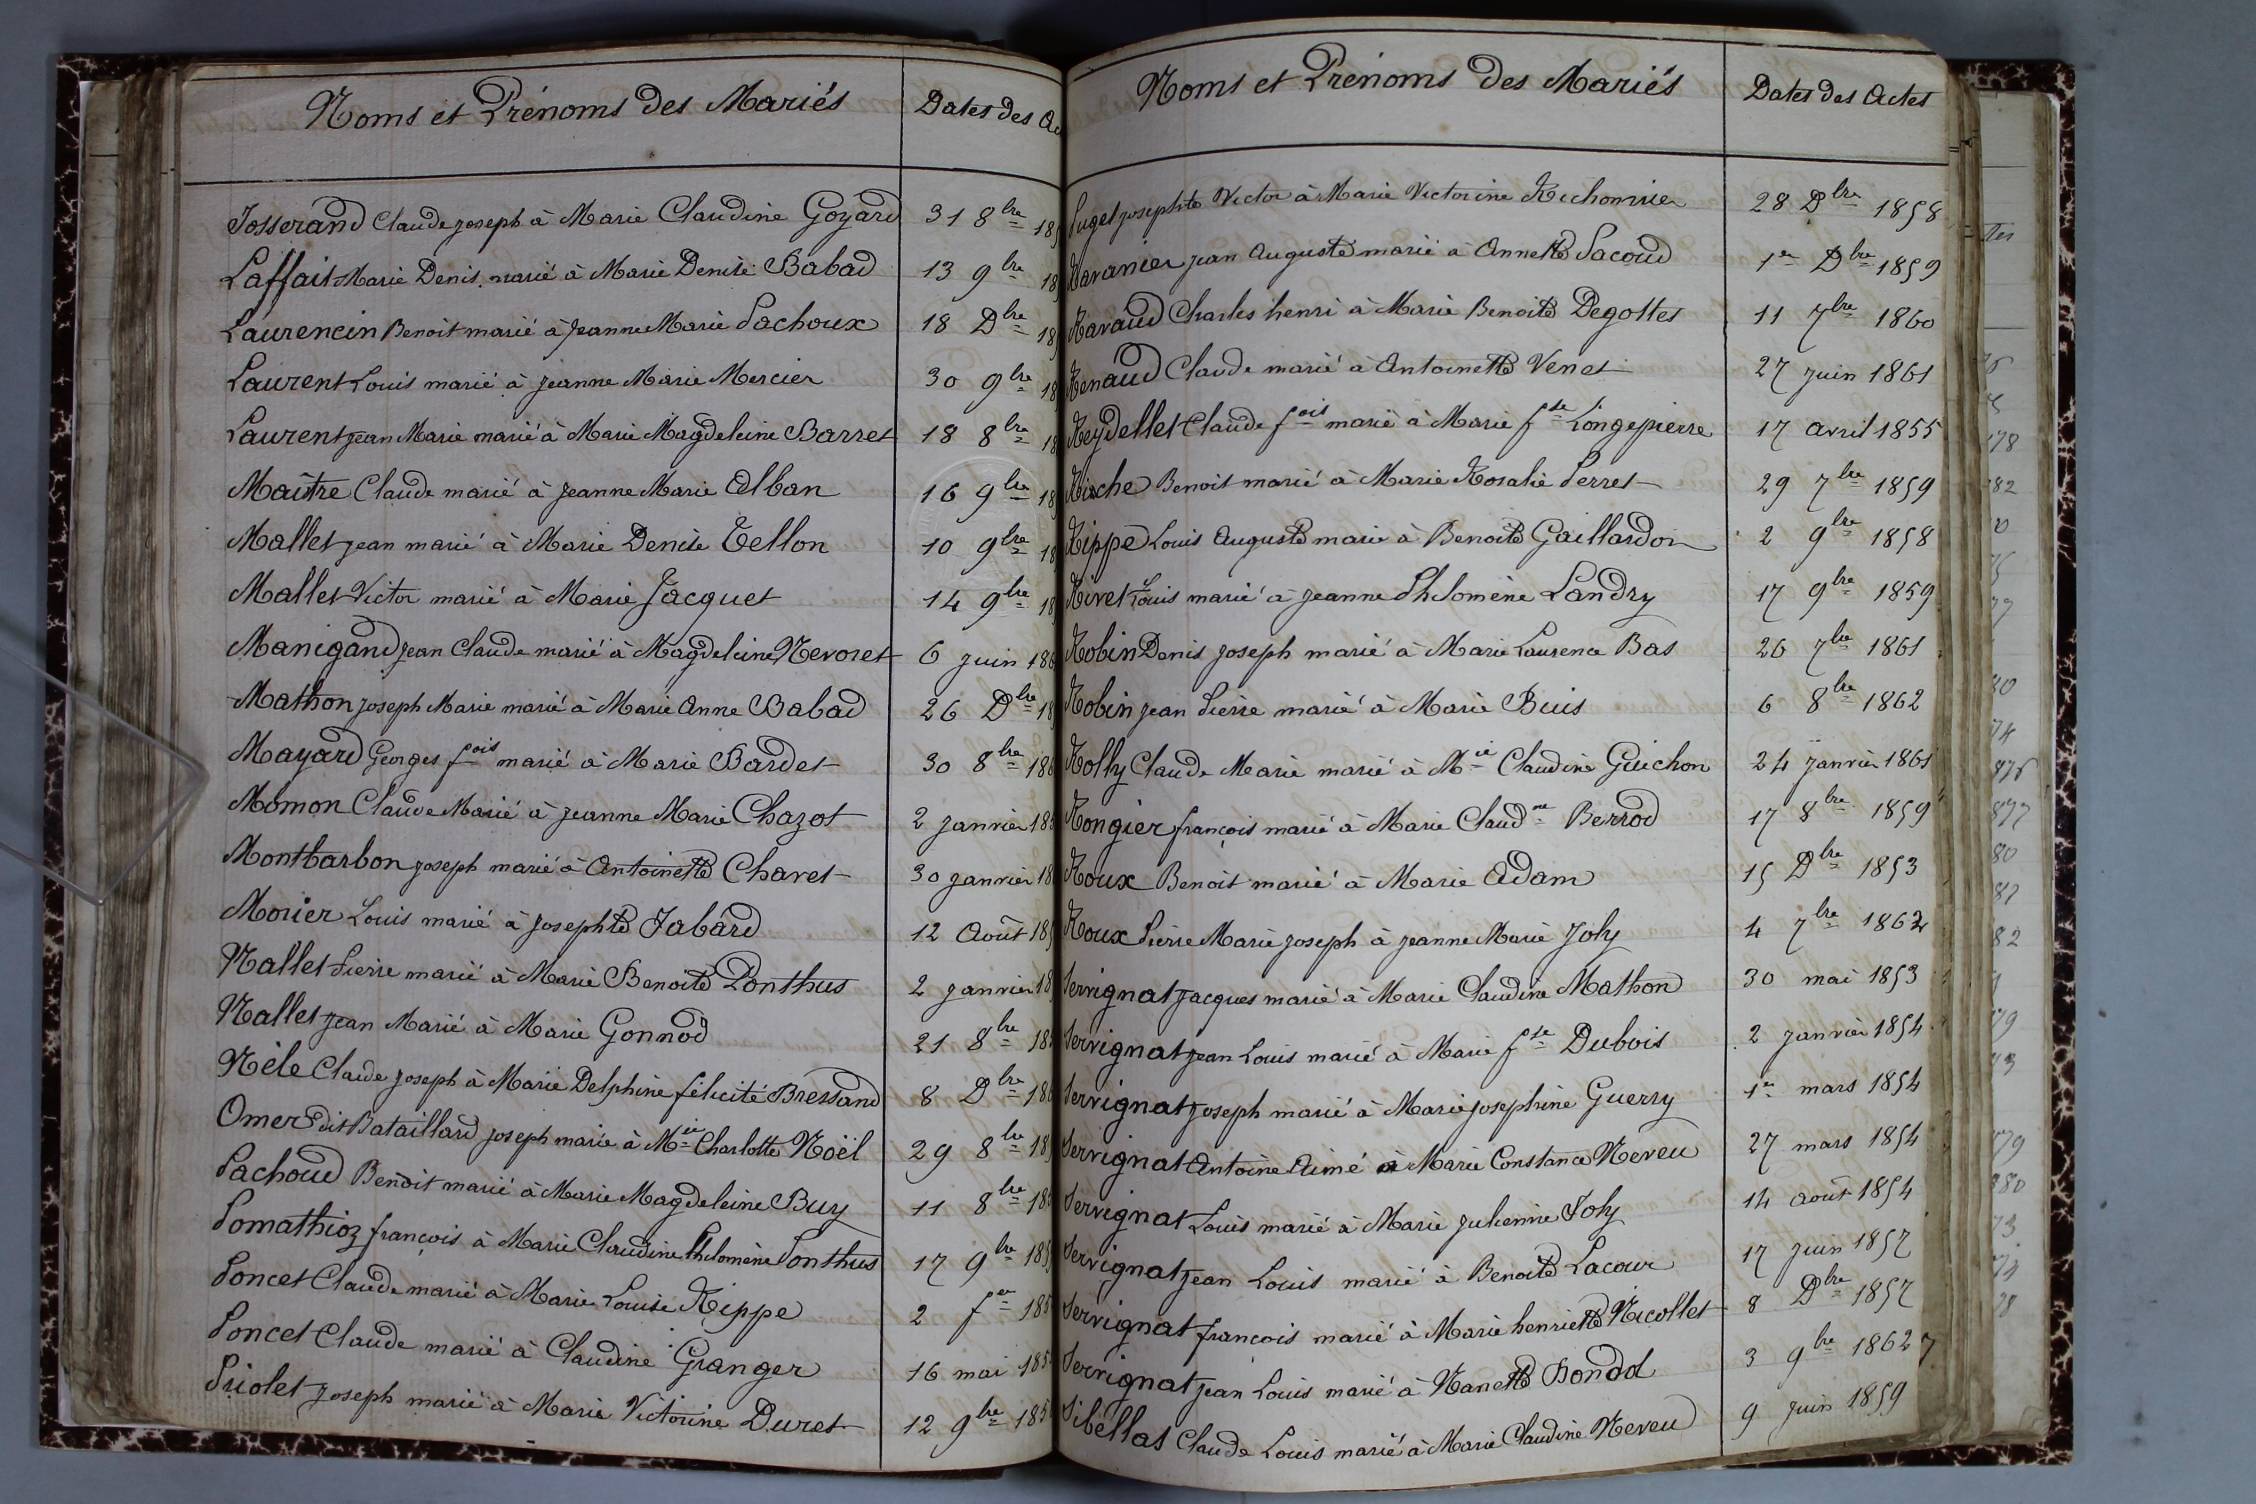 Noms et Prénoms des Mariés
Dates des Ac
Josserand Claude joseph à Marie Claudine Goyard 31 8bre 18
Laffait Marie Denis marié à Marie Denise Babad 13 9bre 18
Laurencin Benoit marié à Jeanne Marie Pachoux 18 Dbre 18
Laurent Louis marié à Jeanne Marie Mercier 30 9bre 18
Laurent Jean Marie marié à Marie Magdeleine Barret 18 8bre 18
Maître Claude marié à Jeanne Marie Alban 16 9bre 18
Mallet Jean marié à Marie Denise Tellon 10 9bre 18
Mallet Victor marié à Marie Jacquet 14 9bre 18
Manigand Jean Claude marié à Magdeleine Nevoret 6 juin 186
Mathon Joseph Marie marié à Marie Anne Babad 26 Dbre 18
Mayard Georges fois marié à Marie Bardet 30 8bre 186
Momon Claude Marié à Jeanne Marie Chazot 2 janvier 18
Montbarbon Joseph marié à Antoinette Charet 30 janvier 18
Morier Louis marié à Josephte Jabard 12 Août 18
Nallet Pierre marié à Marie Benoite Ponthus 2 janvier 18
Nallet Jean Marié à Marie Gonnod 21 8bre 18
Nèle Claude Joseph à Marie Delphine félicité Bressand 8 Dbre 186
Omer dit Bataillard Joseph marié à Mie Charlotte Noël 29 8bre 18
Pachoud Benoit marié à Marie Magdeleine Buy 11 8bre 18
Pomathioz françois à Marie Claudine Philomène Ponthus 17 9bre 18
Poncet Claude marié à Marie Louise Rippe 2 fer 18
Poncet Claude marié à Claudine Granger 16 mai 18
Priolet Joseph marié à Marie Victorine Duret 12 9bre 18
Noms et Prénoms des Mariés
Dates des Actes
Puget Josephte Victor à Marie Victorine Richonnier 28 Dbre 1858
Ravanier Jean Auguste marié à Annette Pacoud 1er Dbre 1859
Ravaud Charles henri à Marie Benoite Degottes 11 7bre 1860
Renaud Claude marié à Antoinette Venet 27 juin 1861
Reydellet Claude fois marié à Marie fse Longepierre 17 avril 1855
Riche Benoit marié à Marie Rosalie Perret 29 7bre 1859
Rippe Louis Auguste marié à Benoite Gaillardon 2 9bre 1858
Rivet Louis marié à Jeanne Philomène Landry 17 9bre 1859
Robin Denis Joseph marié à Marie Laurence Bas 26 7bre 1861
Robin Jean Pierre marié à Marie Buis 6 8bre 1862
Rolly Claude Marie marié à Mie Claudine Guichon 24 janvier 1861
Rongier françois marié à Marie Claudne Berrod 17 8bre 1859
Roux Benoit marié à Marie Adam 15 Dbre 1853
Roux Pierre Marie Joseph à Jeanne Marie Joly 4 7bre 1862
Servignat Jacques marié à Marie Claudine Mathon 30 mai 1853
Servignat Jean Louis marié à Marie fse Dubois 2 janvier 1854
Servignat Joseph marié à Marie Josephine Guerry 1er mars 1854
Servignat Antoine Aimé à Marie Constance Neveu 27 mars 1854
Servignat Louis marié à Marie Julienne Joly 14 août 1854
Servignat Jean Louis marié à Benoite Lacour 17 juin 1857
Servignat françois marié à Marie henriette Nicollet 8 Dbre 1857
Servignat Jean Louis marié à Nanette Bondol 3 9bre 1862
Sibellas Claude Louis marié à Marie Claudine Neveu 9 Juin 1859